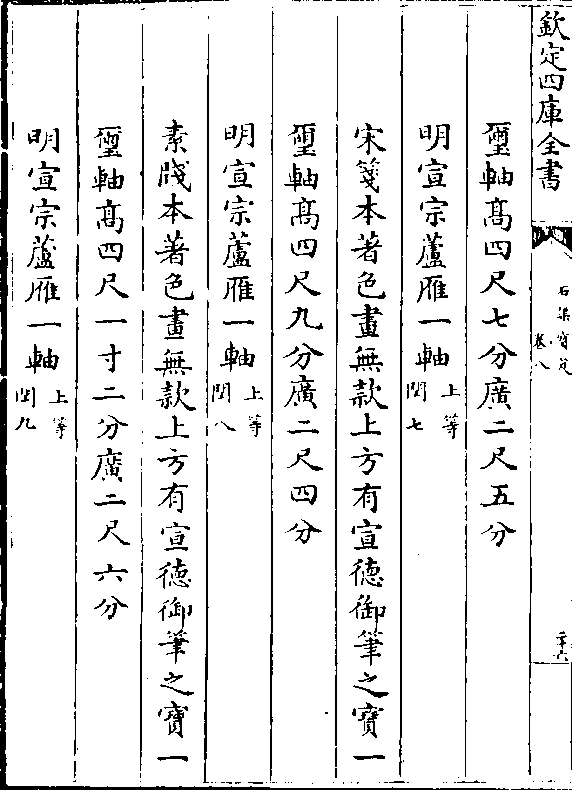 欽定四庫全書
石渠寶笈
卷八
二十六
璽軸高四尺七分廣二尺五分
明宣宗蘆雁一軸上等閏七
宋箋本著色畫無款上方有宣德御筆之寶一
璽軸高四尺九分廣二尺四分
明宣宗蘆雁一軸上等閏八
素牋本著色畫無款上方有宣德御筆之寶一
璽軸高四尺一寸二分廣二尺六分
明宣宗蘆雁一軸上等閏九